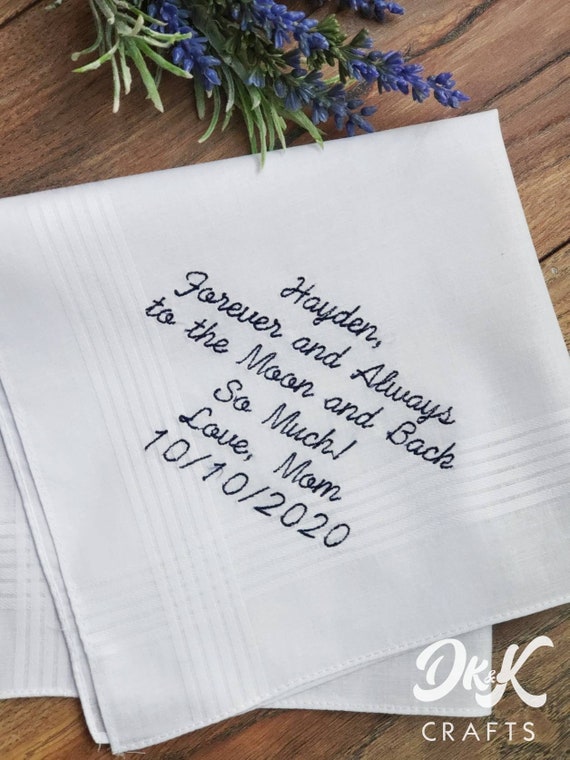 Hayden,
Forever and Always
to the Moon and Back
So Much!
Love, Mom
10/10/2020
DK&K
CRAFTS